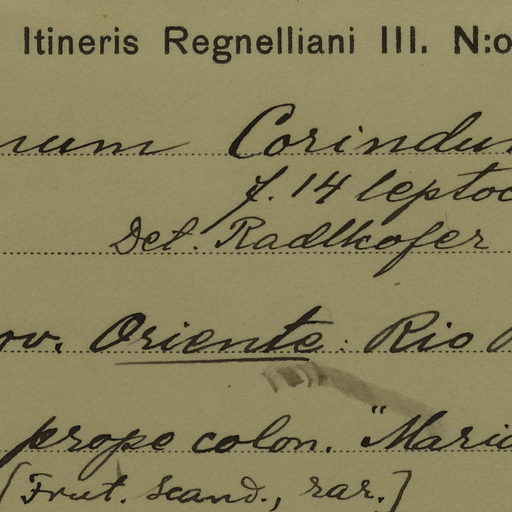 Itineris Regnelliani III. N:o
num Corindum
f. 14 leptoc
Det. Radlkofer
ov. Oriente: Rio
prope colon. "Maria
[Frut. scand., rar.]